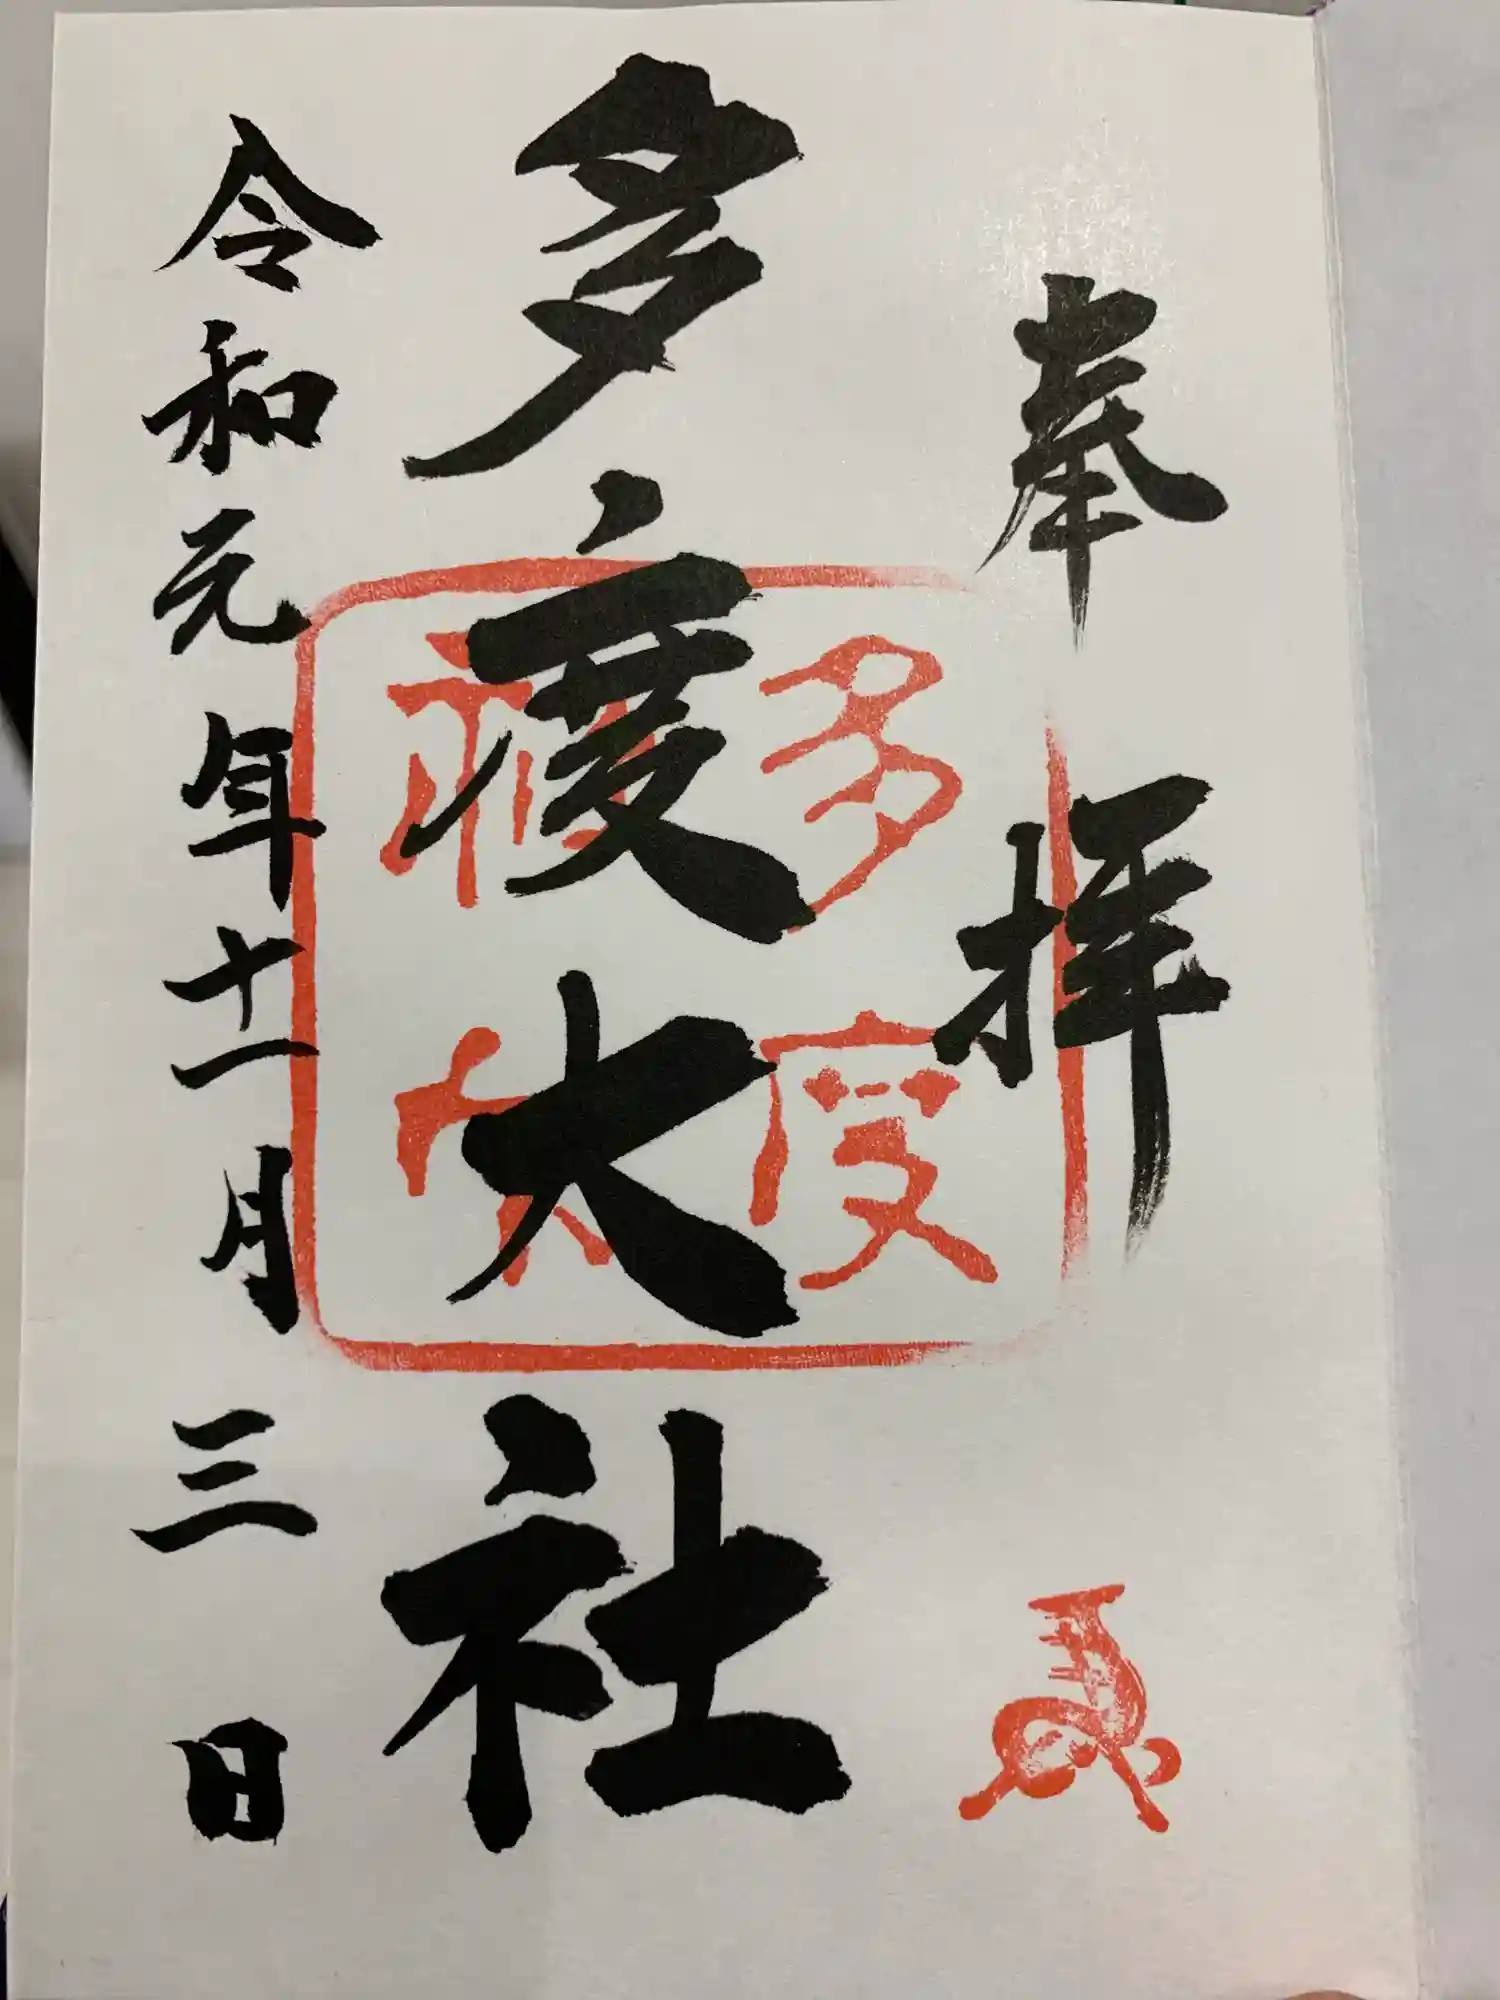 奉拝
多度大社
多度
神社
令和元年十一月三日